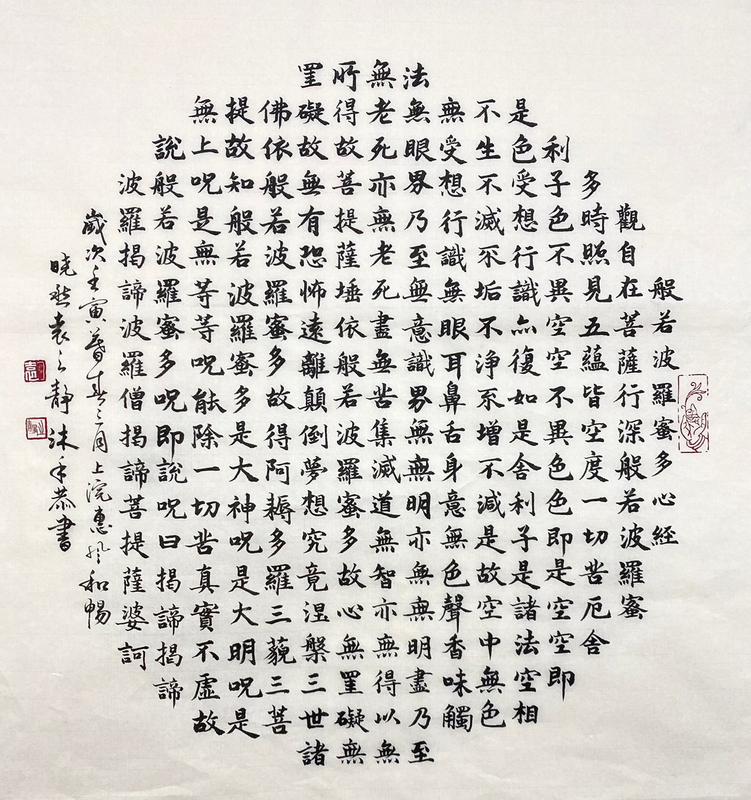 般若波羅蜜多心経
觀自在菩薩行深般若波羅蜜
多時照見五蘊皆空度一切苦厄舎
利子色不異空空不異色色即是空空即
是色受想行識亦復如是舎利子是諸法空相
不生不滅不垢不淨不增不減是故空中無色
無受想行識無眼耳鼻舌身意無色聲香味觸
法無眼界乃至無意識界無無明亦無無明盡乃至
無老死亦無老死盡無苦集滅道無智亦無得以無
所得故菩提薩埵依般若波羅蜜多故心無罣礙無
罣礙故無有恐怖遠離顛倒夢想究竟涅槃三世諸
佛依般若波羅蜜多故得阿耨多羅三藐三菩
提故知般若波羅蜜多是大神呪是大明呪是
無上呪是無等等呪能除一切苦真實不虛故
說般若波羅蜜多呪即說呪曰揭諦揭諦
波羅揭諦波羅僧揭諦菩提薩婆訶
歲次壬寅暮春三月上浣惠風和暢
曉然袁之靜沐手恭書